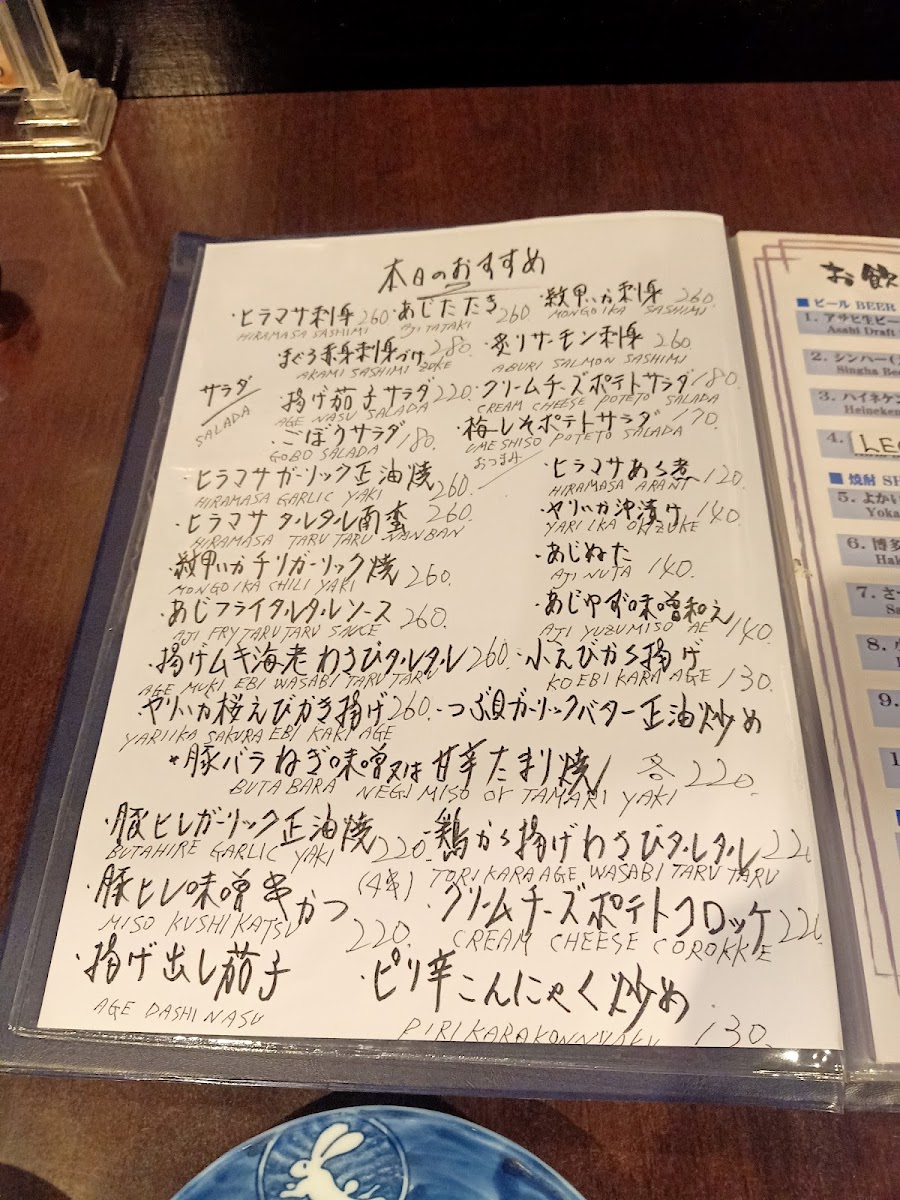 本日のおすすめ
・ヒラマサ刺身 260 ・あじたたき 260 ・紋甲いか刺身 260.
HIRAMASA SASHIMI AJI TATAKI MONGOIKA SASHIMI
・まぐろ赤身刺身づけ 280. ・炙りサーモン刺身 260
AKAMI SASHIMI ZUKE ABURI SALMON SASHIMI
サラダ
SALADA
・揚げ茄子サラダ 220. ・クリームチーズポテトサラダ 180.
AGE NASU SALADA CREAM CHEESE POTETO SALADA
・ごぼうサラダ 180. ・梅しそポテトサラダ 170.
GOBO SALADA UME SHISO POTETO SALADA
おつまみ
・ヒラマサガーリック正油焼 260. ・ヒラマサあら煮 120.
HIRAMASA GARLIC YAKI HIRAMASA ARANI
・ヒラマサタルタル南蛮 260. ・ヤリいか沖漬け 140.
HIRAMASA TARU TARU NANBAN YARI IKA OKIZUKE
・紋甲いかチリガーリック焼 260. ・あじぬた 140.
MONGOIKA CHILI YAKI AJI NUTA
・あじフライタルタルソース 260. ・あじゆず味噌和え 140.
AJI FRY TARU TARU SAUCE AJI YUZU MISO AE
・揚げムキ海老わさびタルタル 260. ・小えびから揚げ 130.
AGE MUKI EBI WASABI TARU TARU KOEBI KARA AGE
・ヤリいか桜えびかき揚げ 260. ・つぶ貝ガーリックバター正油炒め
YARIIKA SAKURA EBI KAKI AGE
・豚バラねぎ味噌又は甘辛たまり焼 各 220.
BUTA BARA NEGI MISO or TAMARI YAKI
・豚ヒレガーリック正油焼 220. ・鶏から揚げわさびタルタル 22
BUTAHIRE GARLIC YAKI TORI KARA AGE WASABI TARU TARU
・豚ヒレ味噌串かつ (4串) 220. ・クリームチーズポテトコロッケ 22
MISO KUSHI KATSU CREAM CHEESE COROKKE
・揚げ出し茄子 ・ピリ辛こんにゃく炒め 130.
AGE DASHI NASU PIRI KARA KONNYAKU
お飲
■ビール BEER
1. アサヒ生ビー
Asahi Draft
2. シンハー
Singha Be
3. ハイネケン
Heineken
4.
■焼酎 SH
5. よかい
Yoka
6. 博多
Hak
7. さ
Sa
8.
9.